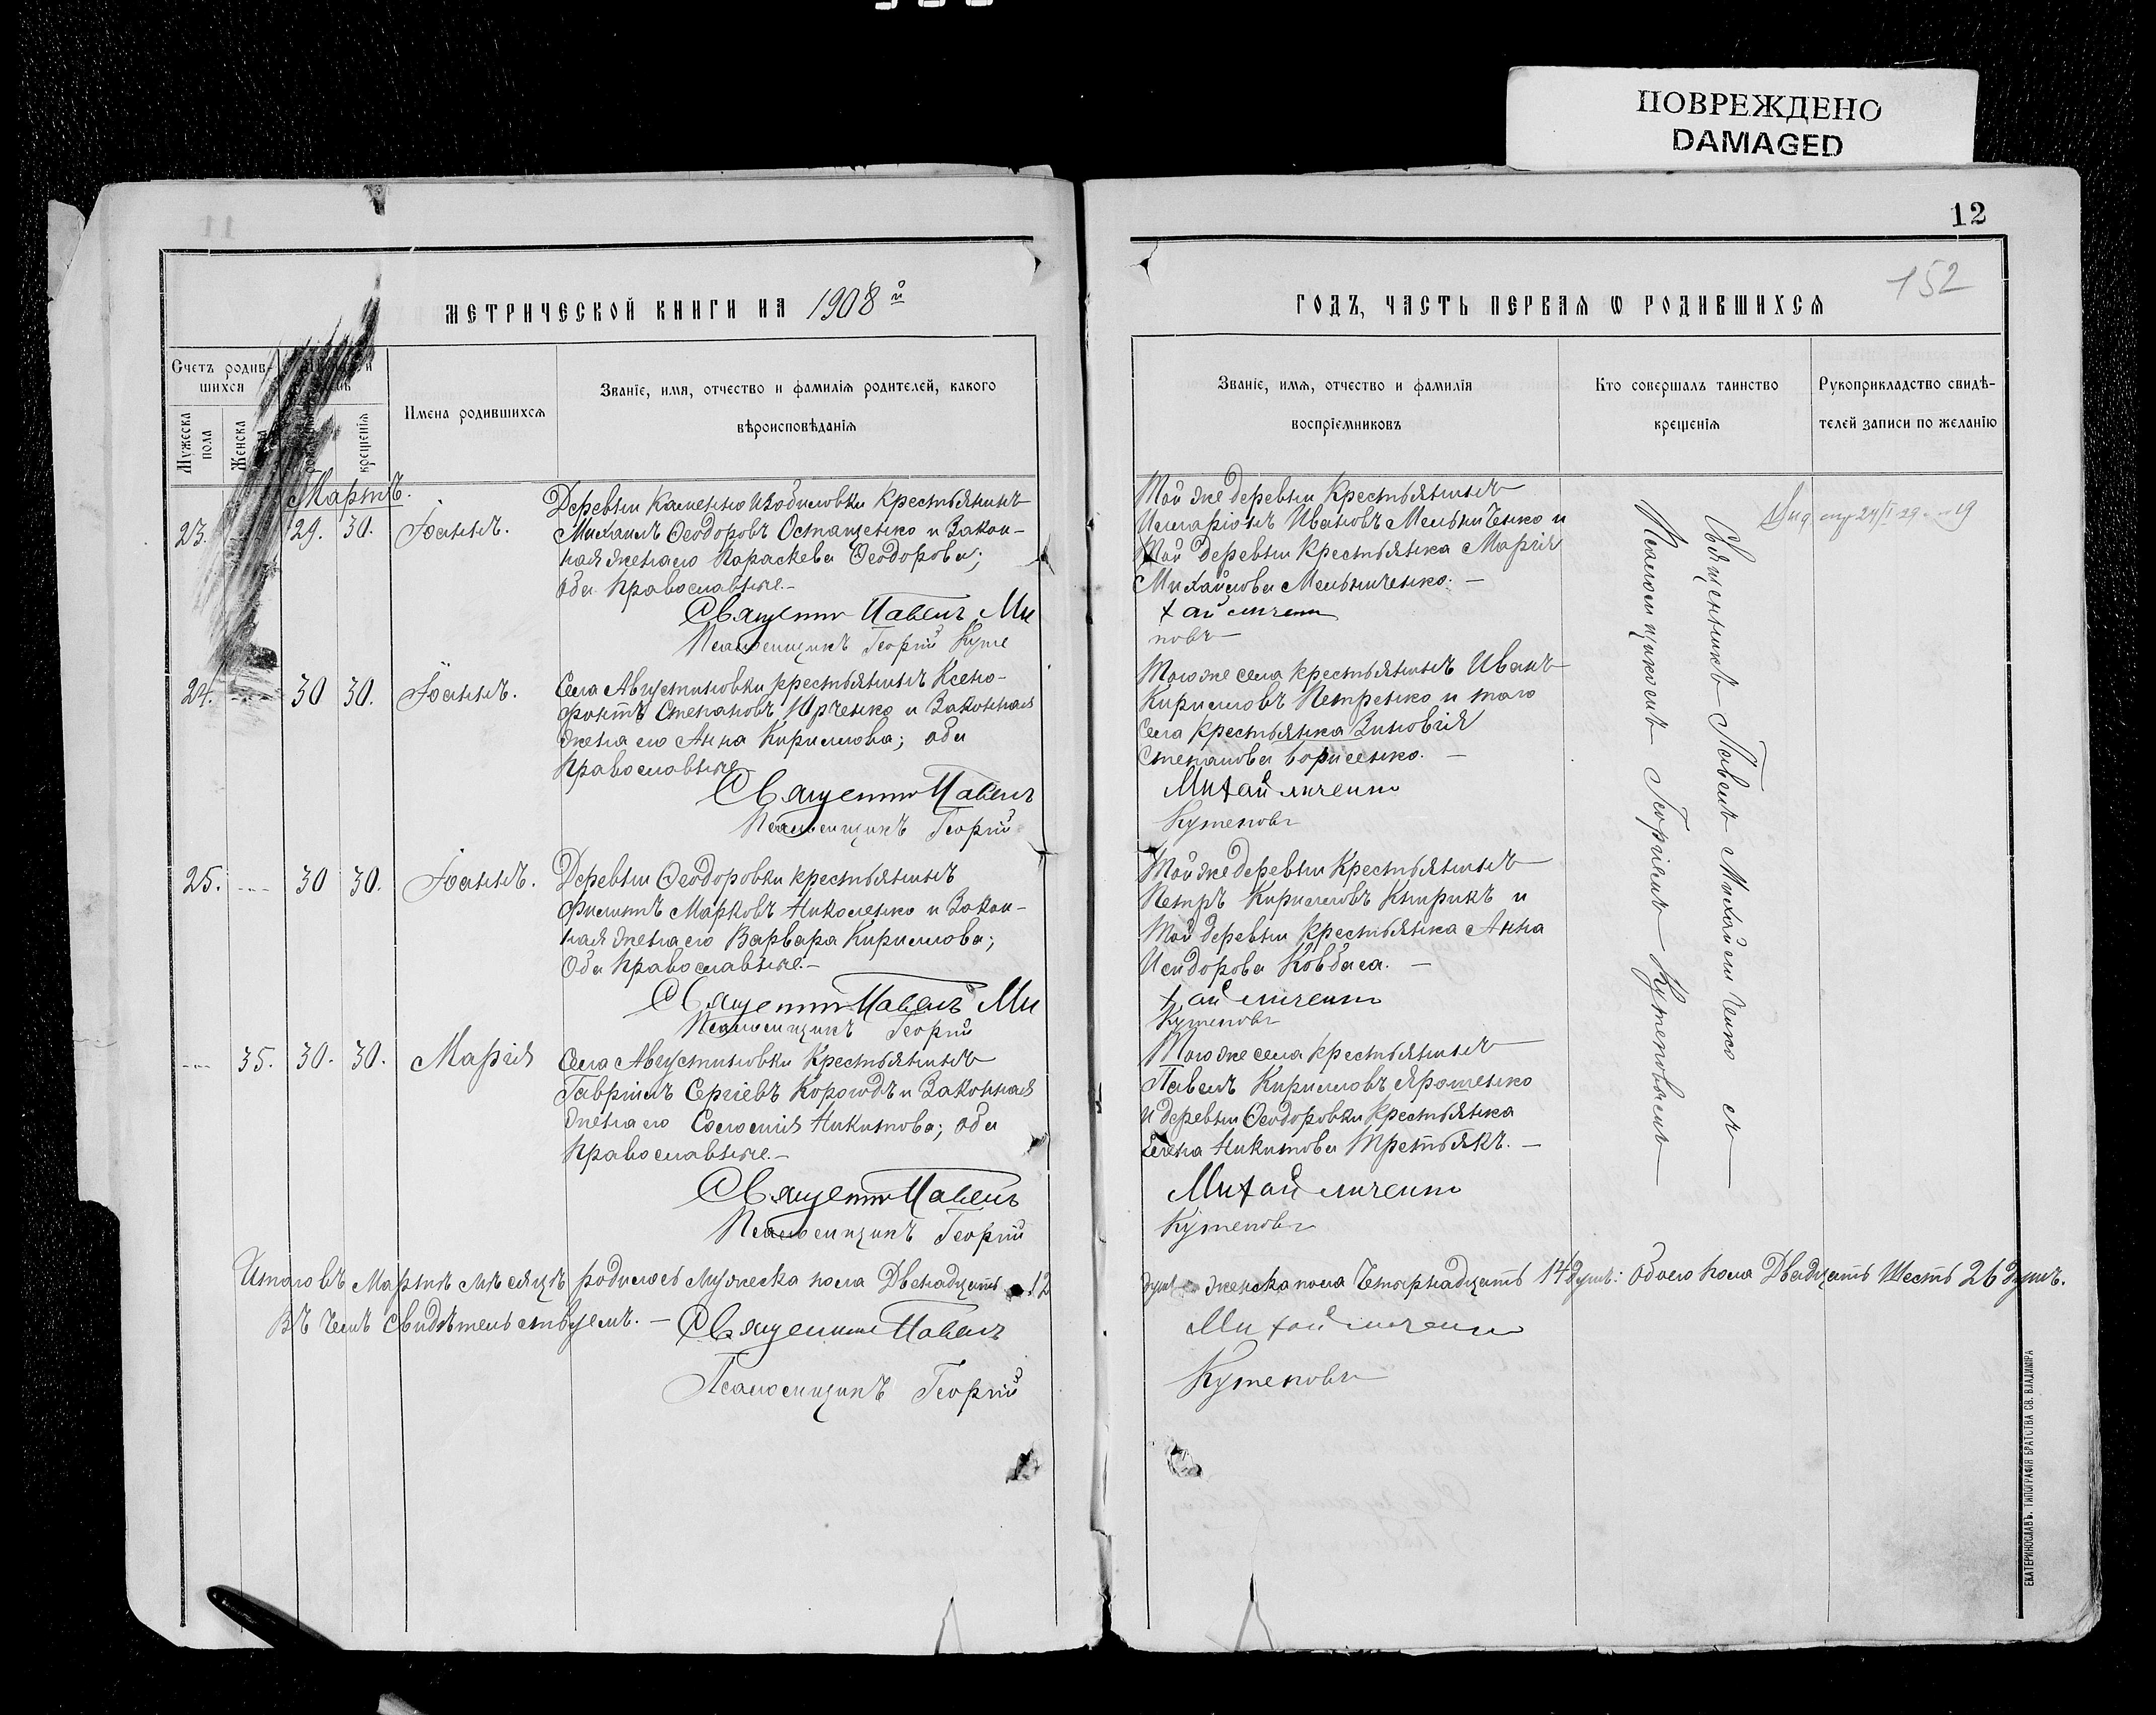 ПОВРЕЖДЕНО
DAMAGED
12
152
МЕТРИЧЕСКОЙ КНИГИ НА 1908й
Счетъ родив-
шихся
Мужеска
пола
Женска
крещенія
Имена родившихся
Званіе, имя, отчество и фамилія родителей, какого
вѣроисповѣданія
Мартъ.
23. 29. 30. Іоаннъ.
Деревни Каменно Изобиловки крестьянинъ
Михаилъ Ѳеодоровъ Остащенко и закон-
ная жена его Параскева Ѳеодорова;
оба православные.–
Священникъ Павелъ Ми
Псаломщикъ Георгій Куте
24. --- 30 30. Іоаннъ.
Села Августиновки крестьянинъ Ксено-
фонтъ Степановъ Юрченко и законная
жена его Анна Кириллова; оба
православные.
Священникъ Павелъ
Псаломщикъ Георгій
25. --- 30 30. Іоаннъ.
Деревни Ѳеодоровки крестьянинъ
Филиппъ Марковъ Николенко и закон-
ная жена его Варвара Кириллова;
оба православные.–
Священникъ Павелъ Ми
Псаломщикъ Георгій
--- 35. 30. 30. Марія
Села Августиновки крестьянинъ
Гавріилъ Сергіевъ Корогодъ и законная
жена его Соломія Никитова; оба
православные.–
Священникъ Павелъ
Псаломщикъ Георгій
Итого въ Мартѣ мѣсяцѣ родилось мужеска пола Двенадцать 12
въ чемъ свидѣтельствуемъ. –
Священникъ Павелъ
Псаломщикъ Георгій
ГОДЪ, ЧАСТЬ ПЕРВАЯ Ѡ РОДИВШИХСЯ
Званіе, имя, отчество и фамилія
воспріемниковъ
Кто совершалъ таинство
крещенія
Рукоприкладство свидѣ-
телей записи по желанію
Той же деревни крестьянинъ
Иларіонъ Ивановъ Мельниченко и
той деревни крестьянка Марія
Михайлова Мельниченко. –
хайличенко
повъ
Того же села крестьянинъ Иванъ
Кирилловъ Петренко и того
села крестьянка Зиновія
Степанова Борисенко. –
Михайличенко
Кутеповъ
Той же деревни крестьянинъ
Петръ Кирилловъ Кнырикъ и
той деревни крестьянка Анна
Исидорова Ковбаса. –
хайличенко
Кутеповъ
Того же села крестьянинъ
Павелъ Кирилловъ Ярошенко
и деревни Ѳеодоровки крестьянка
Елена Никитова Третьякъ. –
Михайличенко
Кутеповъ
душ женска пола Четырнадцать 14 душъ: обоего пола Двадцать Шесть 26 душъ.
Михайличенко
Кутеповъ
Священникъ Павелъ Михайличенко съ
Псаломщикомъ Георгіемъ Кутеповымъ
ЕКАТЕРИНОСЛАВЪ. ТИПОГРАФІЯ БРАТСТВА СВ. ВЛАДИМІРА